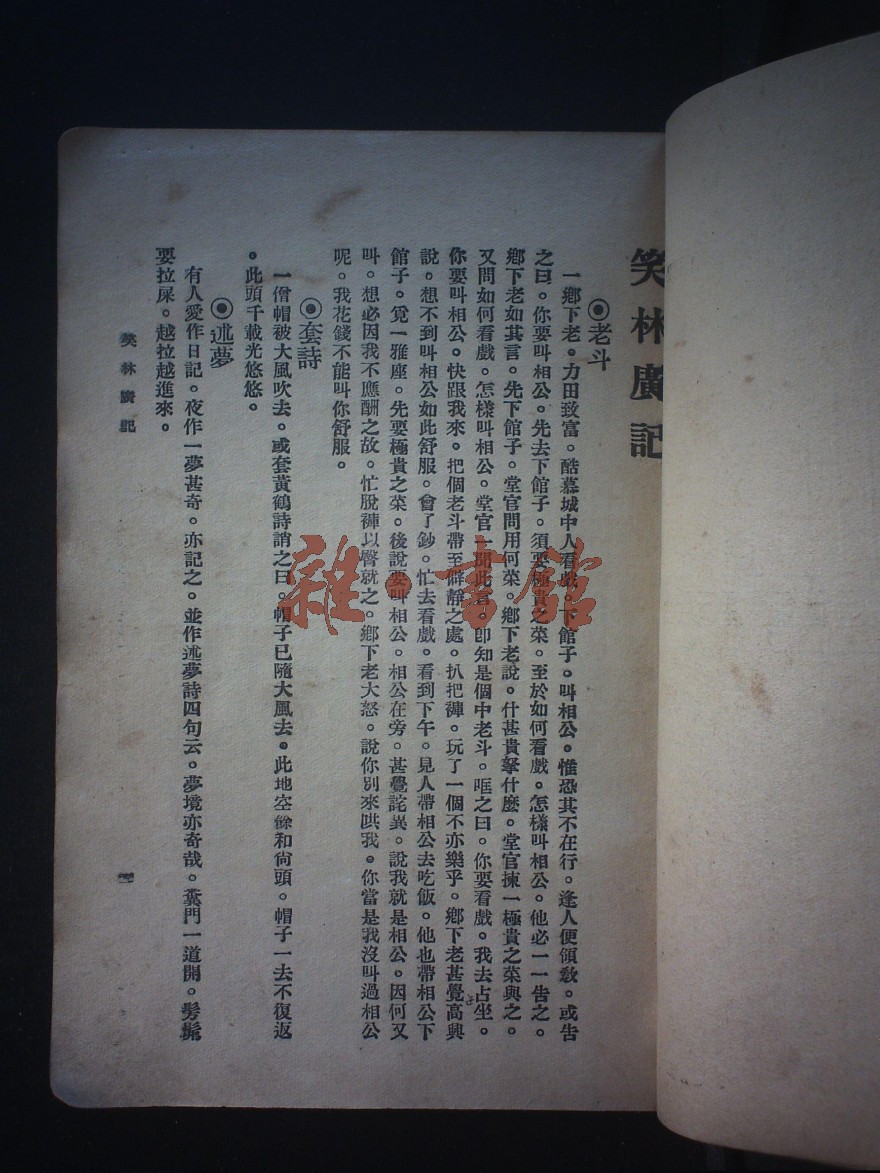 笑林廣記
◉老斗
一鄉下老。力田致富。酷慕城中人看戲。下館子。叫相公。惟恐其不在行。逢人便領敎。或告
之曰。你要叫相公。先去下館子。須要極貴之菜。至於如何看戲。怎樣叫相公。他必一一告之。
鄉下老如其言。先下館子。堂官問用何菜。鄉下老說。什甚貴拏什麽。堂官揀一極貴之菜與之。
又問如何看戲。怎樣叫相公。堂官一聞此言。卽知是個中老斗。哐之曰。你要看戲。我去占坐。
你要叫相公。快跟我來。把個老斗帶至僻靜之處。扒把褲。玩了一個不亦樂乎。鄉下老甚覺高興
說。想不到叫相公如此舒服。會了鈔。忙去看戲。看到下午。見人帶相公去吃飯。他也帶相公下
館子。覓一雅座。先要極貴之菜。後說要叫相公。相公在旁。甚覺詫異。說我就是相公。因何又
叫。想必因我不應酬之故。忙脫褲以臀就之。鄉下老大怒。說你別來哄我。你當是我沒叫過相公
呢。我花錢不能叫你舒服。
◉套詩
一僧帽被大風吹去。或套黃鶴詩誚之曰。帽子已隨大風去。此地空餘和尙頭。帽子一去不復返
。此頭千載光悠悠。
◉述夢
有人愛作日記。夜作一夢甚奇。亦記之。並作述夢詩四句云。夢境亦奇哉。糞門一道開。髣髴
要拉屎。越拉越進來。
笑林廣記
一
雜·書館